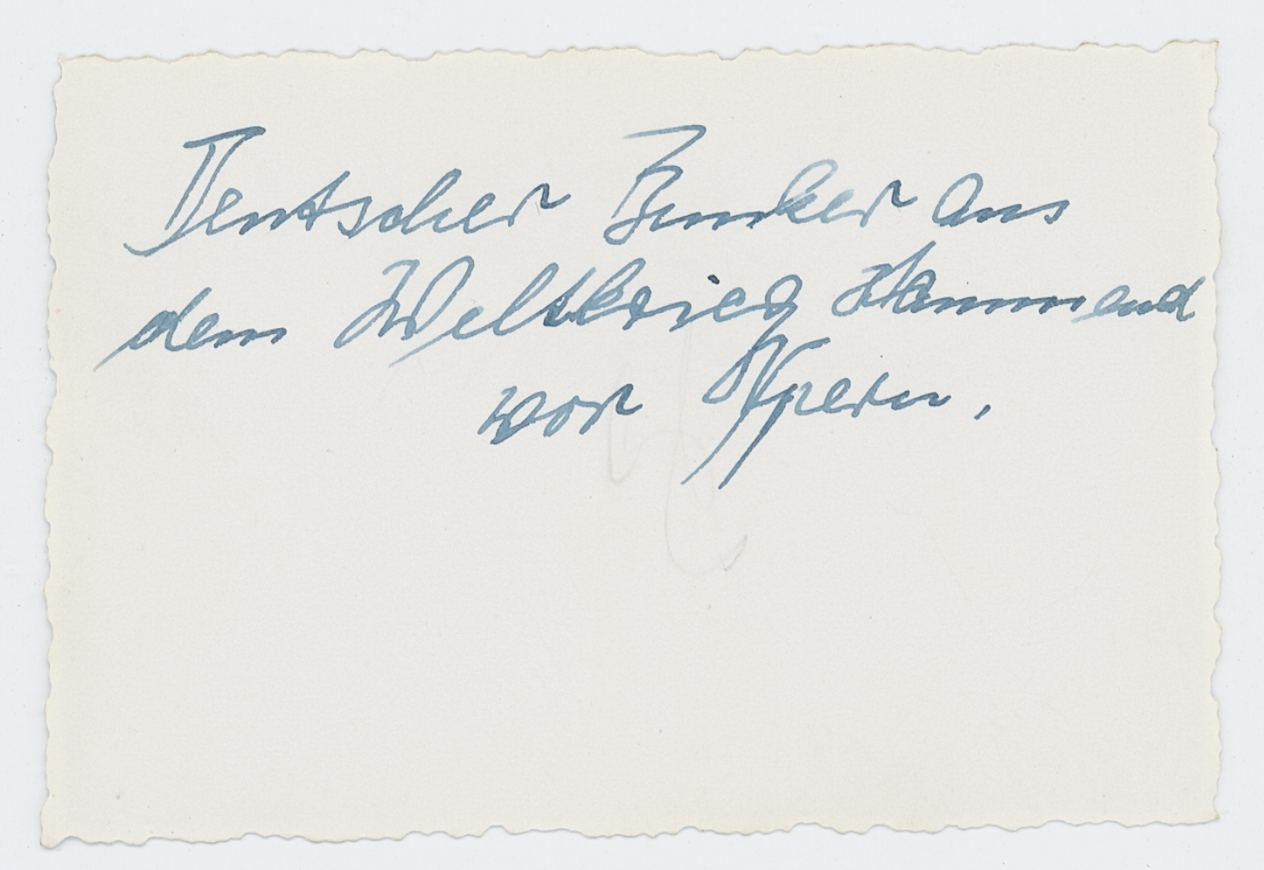 Deutscher Bunker aus
dem Weltkrieg stammend
vor Ypern.